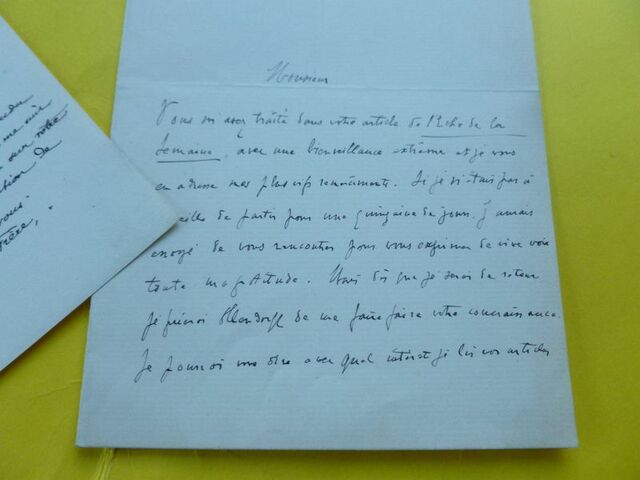 Monsieur
Vous m'avez traité dans votre article de l'Echo de la
Semaine, avec une bienveillance extrême et je vous
en adresse mes plus vifs remerciements. Si je n'étais pas à
veille de partir pour une quinzaine de jours, j'aurais
essayé de vous rencontrer pour vous exprimer de vive voix
toute ma gratitude. Mais dès que je serai de retour
je prierai Ollendorff de me faire faire votre connaissance.
Je pourrai vous dire avec quel intérêt je lis vos articles
me suis
votre
de
vous